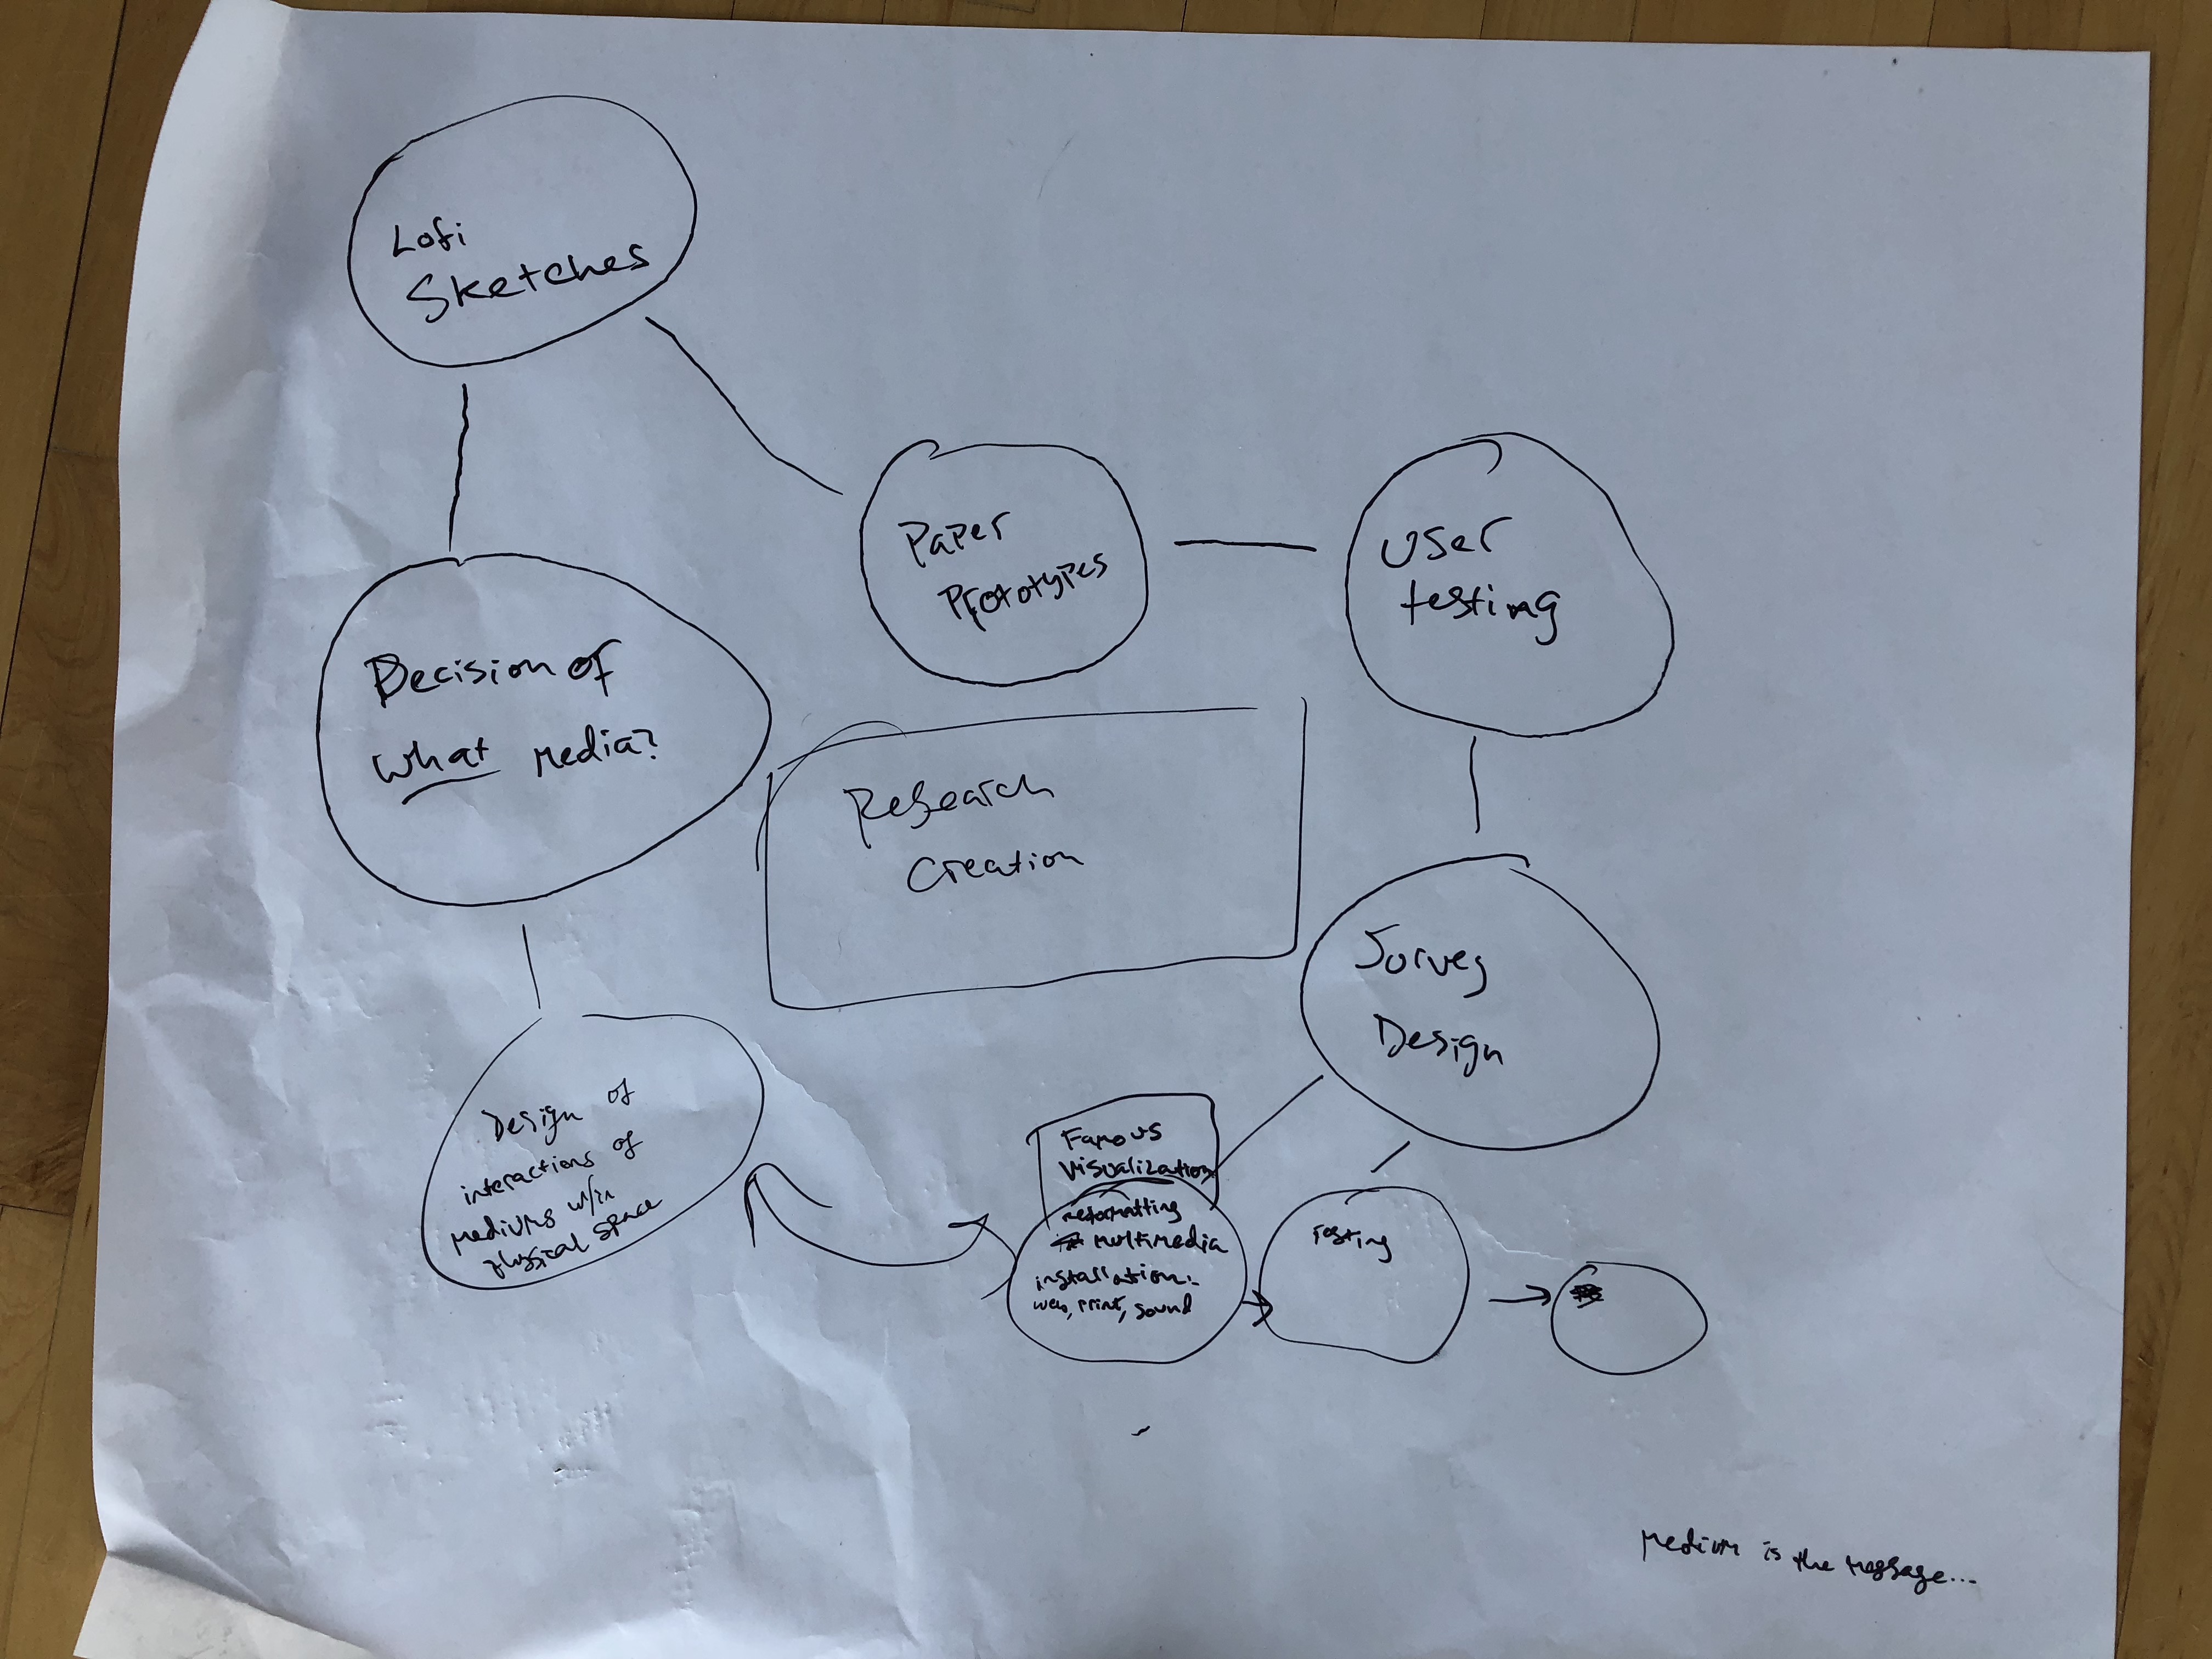 Lofi
Sketches
Paper
Prototypes
User
testing
Decision of
What media?
Research
Creation
Survey
Design
Design of
interactions of
mediums w/in
physical space
Famous
Visualization
reformatting
multimedia
installation:
web, print, sound
Testing
Medium is the message...